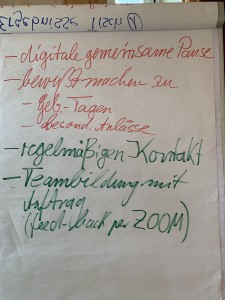 Ergebnisse Tisch N
- digitale gemeinsame Pause
- bewußt machen zu
- geb-Tagen
- besond. Anlässe
- regelmäßigen Kontakt
- Teambildung mit
Auftrag
(feed-back per ZOOM)